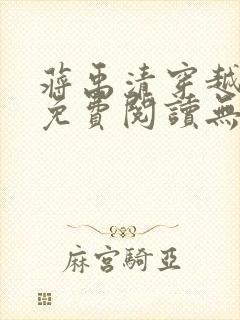 蔣禹清穿越
免費閱讀無
麻宮騎亞